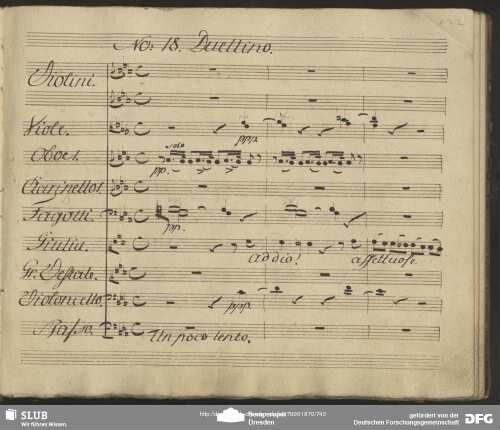 No: 18. Duettino.
Violini.
Viole.
solo
ppp
Oboe 1.
pp.
Clarinetto 1.
Fagotti.
pp.
Giulia.
addio!
affettuoso
Gr. Vestale.
Violoncello.
ppp.
Basso.
Un poco lento.
SLUB
Wir führen Wissen.
Dresden
gefördert von der
Deutschen Forschungsgemeinschaft
DFG